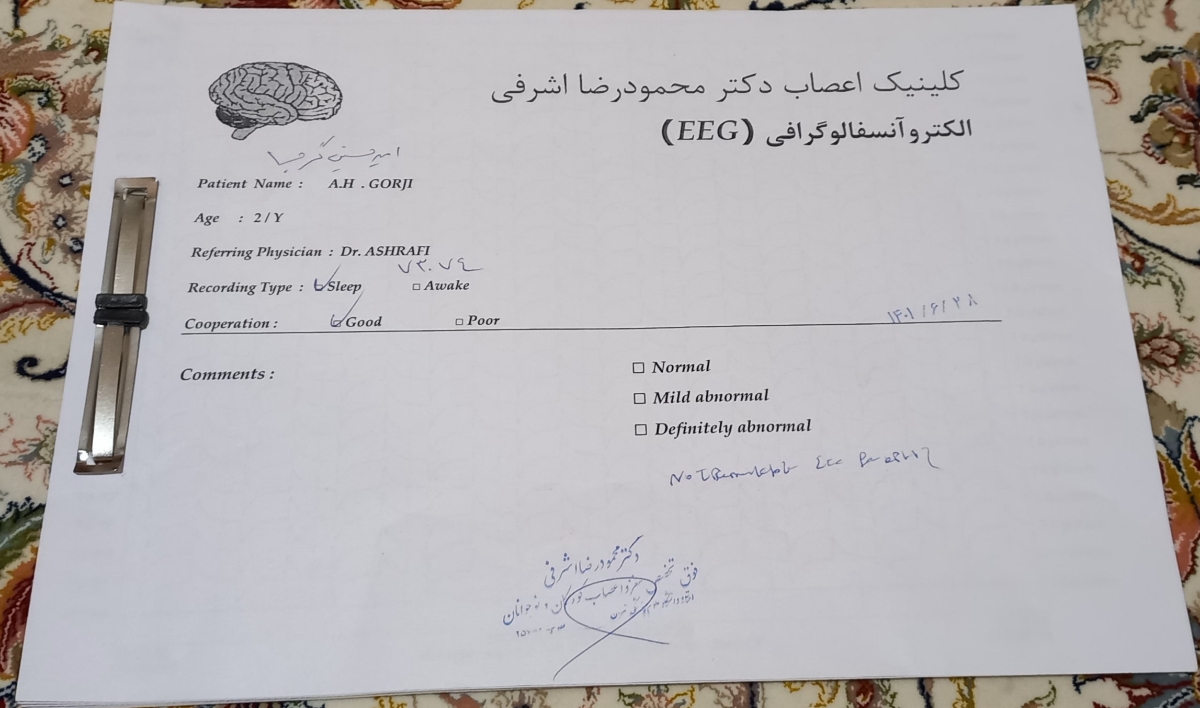 کلینیک اعصاب دکتر محمودرضا اشرفی
الکتروآنسفالوگرافی (EEG)
Patient Name : A.H . GORJI
Age : 2 / Y
Referring Physician : Dr. ASHRAFI
۷۳۰۷۴
Recording Type : Sleep Awake
Cooperation : Good Poor
۱۴۰۱/۶/۲۸
Comments :
Normal
Mild abnormal
Definitely abnormal
دکتر محمودرضا اشرفی
فوق تخصص مغز و اعصاب کودکان و نوجوانان